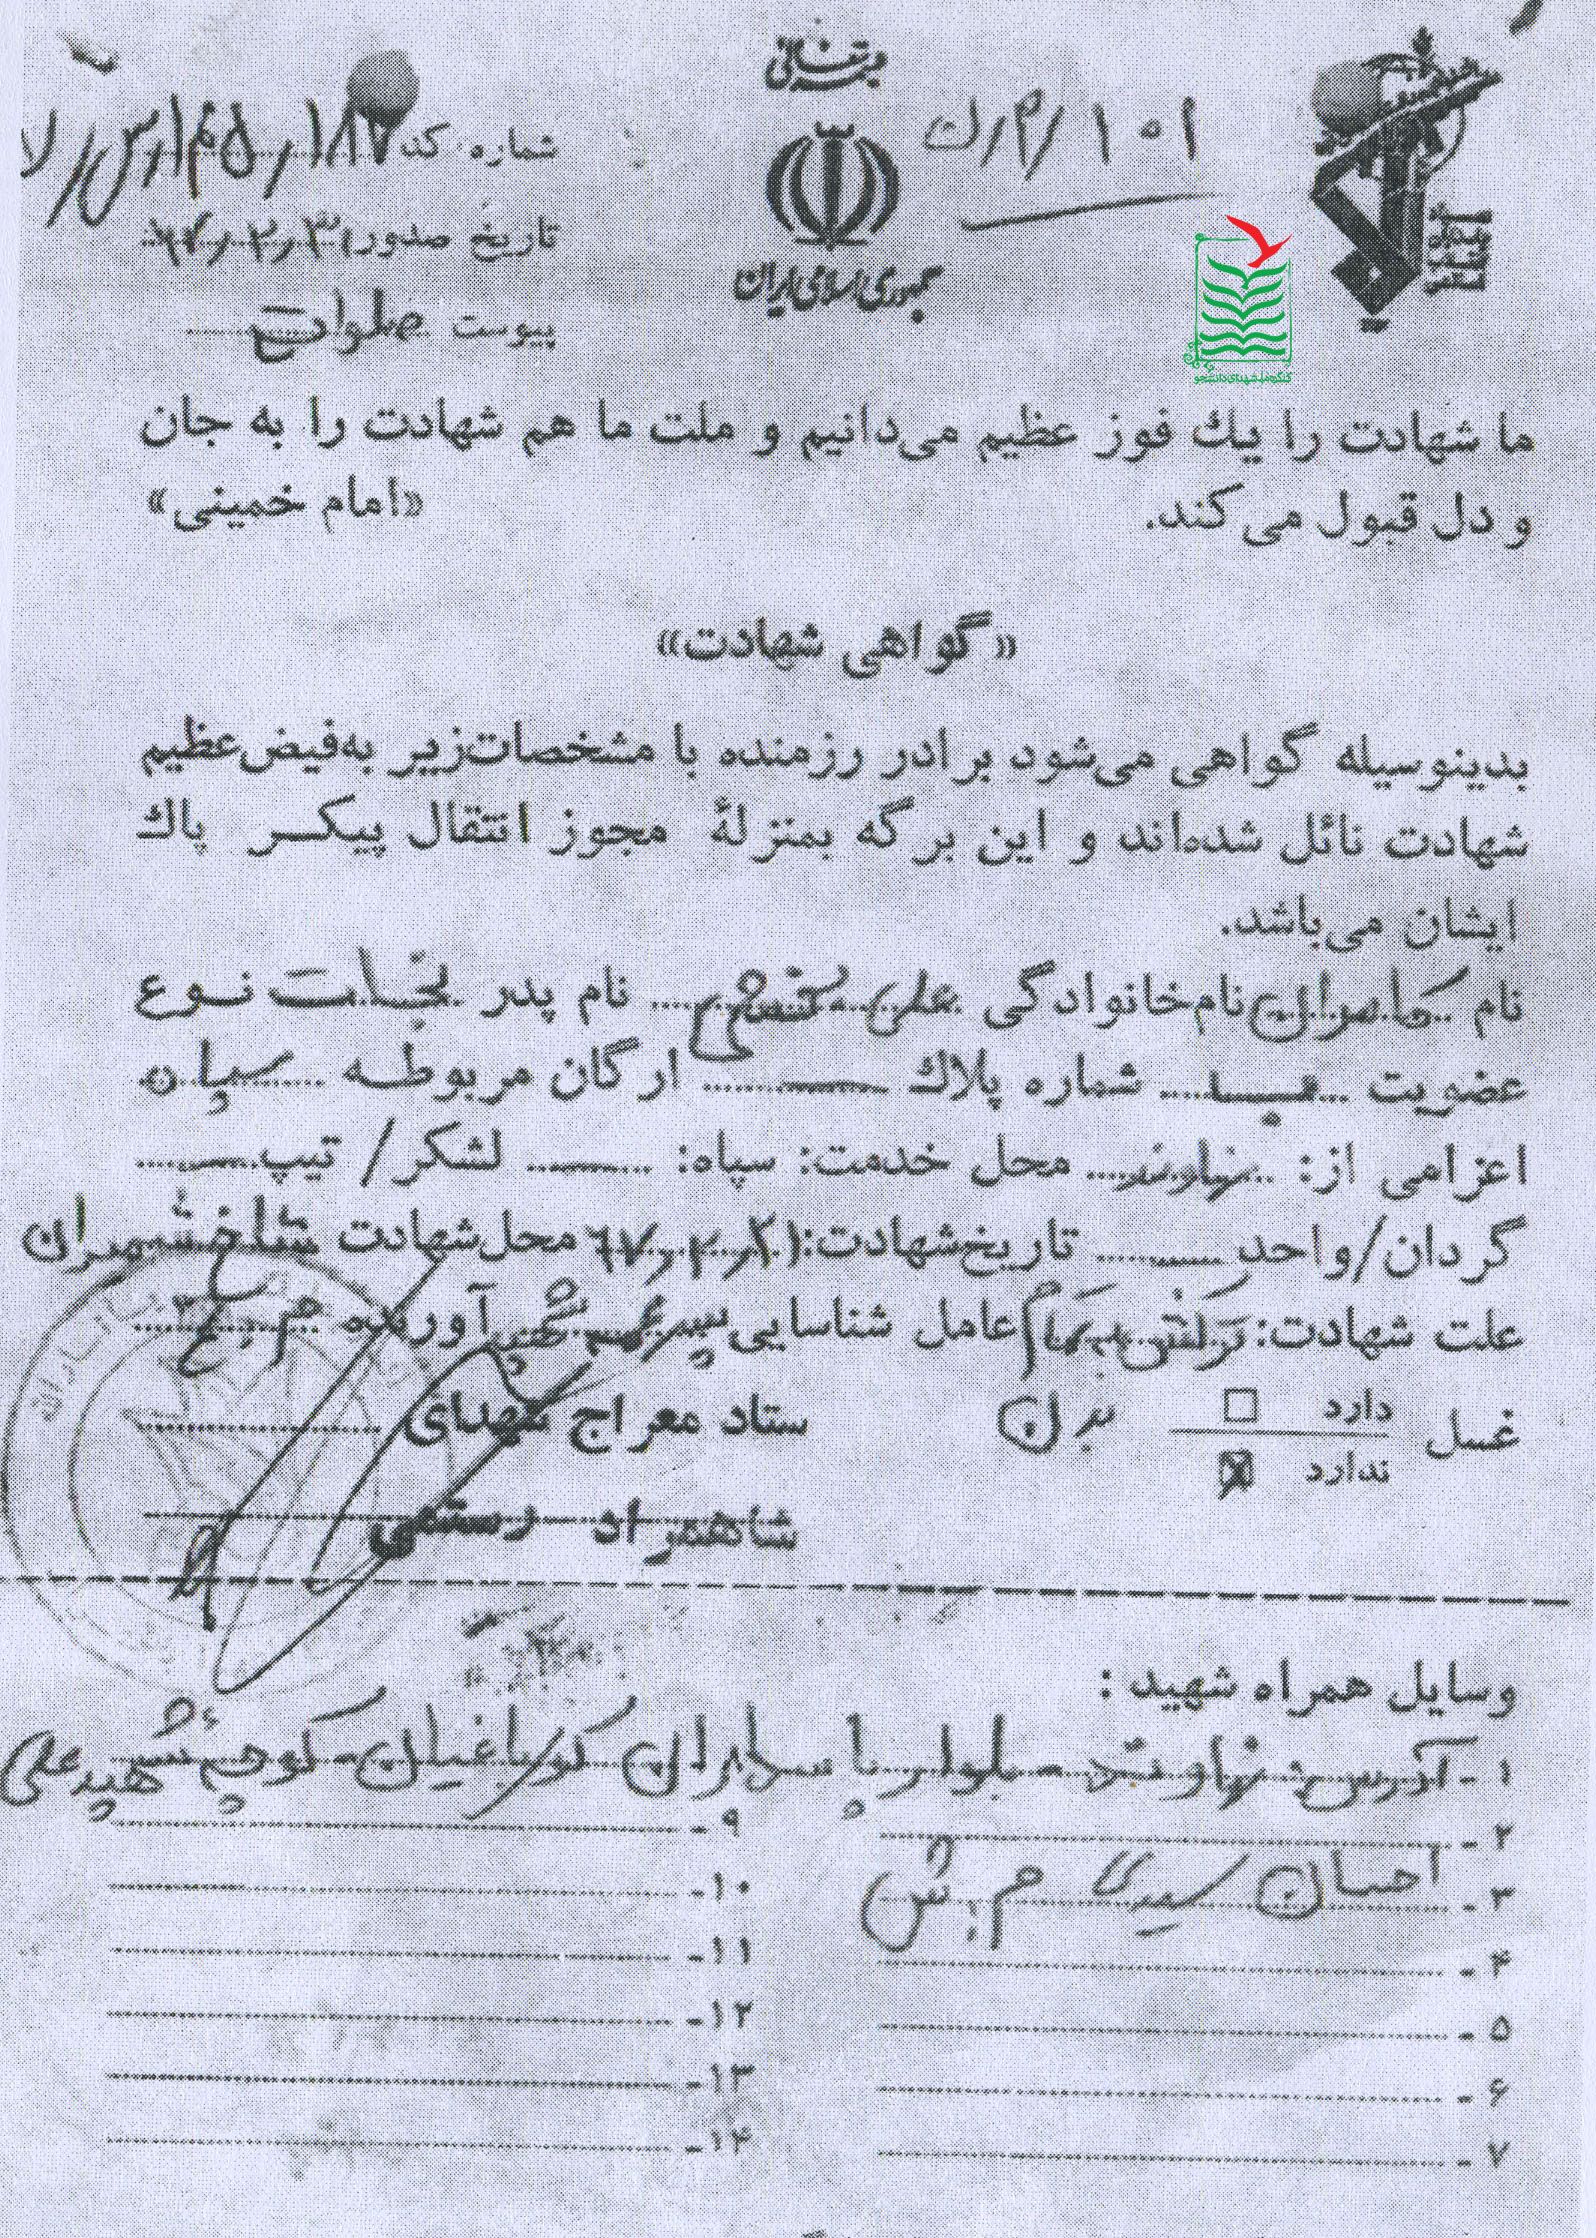 بسمه تعالی
۱۰۱/م/ک
شماره کد
جمهوری اسلامی ایران
تاریخ صدور ۶۷/۲/۳
پیوست صلوات
کنگره ملی شهدای دانشجو
ما شهادت را یك فوز عظیم می‌دانیم و ملت ما هم شهادت را به جان
و دل قبول می‌کند. «امام خمینی»
«گواهی شهادت»
بدینوسیله گواهی می‌شود برادر رزمنده با مشخصات زیر به فیض عظیم
شهادت نائل شده‌اند و این برگه بمنزلهٔ مجوز انتقال پیکر پاك
ایشان می‌باشد.
نام کامران نام خانوادگی علی بخشی نام پدر نجات نوع
عضویت شماره پلاك ارگان مربوطه سپاه
اعزامی از: نهاوند محل خدمت: سپاه: لشکر/ تیپ
گردان/واحد تاریخ شهادت: ۶۷/۲/۲ محل شهادت شاخ شمیران
علت شهادت: ترکش به عامل شناسایی آورنده
غسل دارد ندارد بدن ستاد معراج شهدای
شاهمراد رستمی
وسایل همراه شهید :
۱ - آدرس: نهاوند - بلوار پاسداران کوی باغبان - کوچه شهید علی
۲ -
۹ -
۳ - احسان
۱۰ -
۴ -
۱۱ -
۵ -
۱۲ -
۶ -
۱۳ -
۷ -
۱۴ -